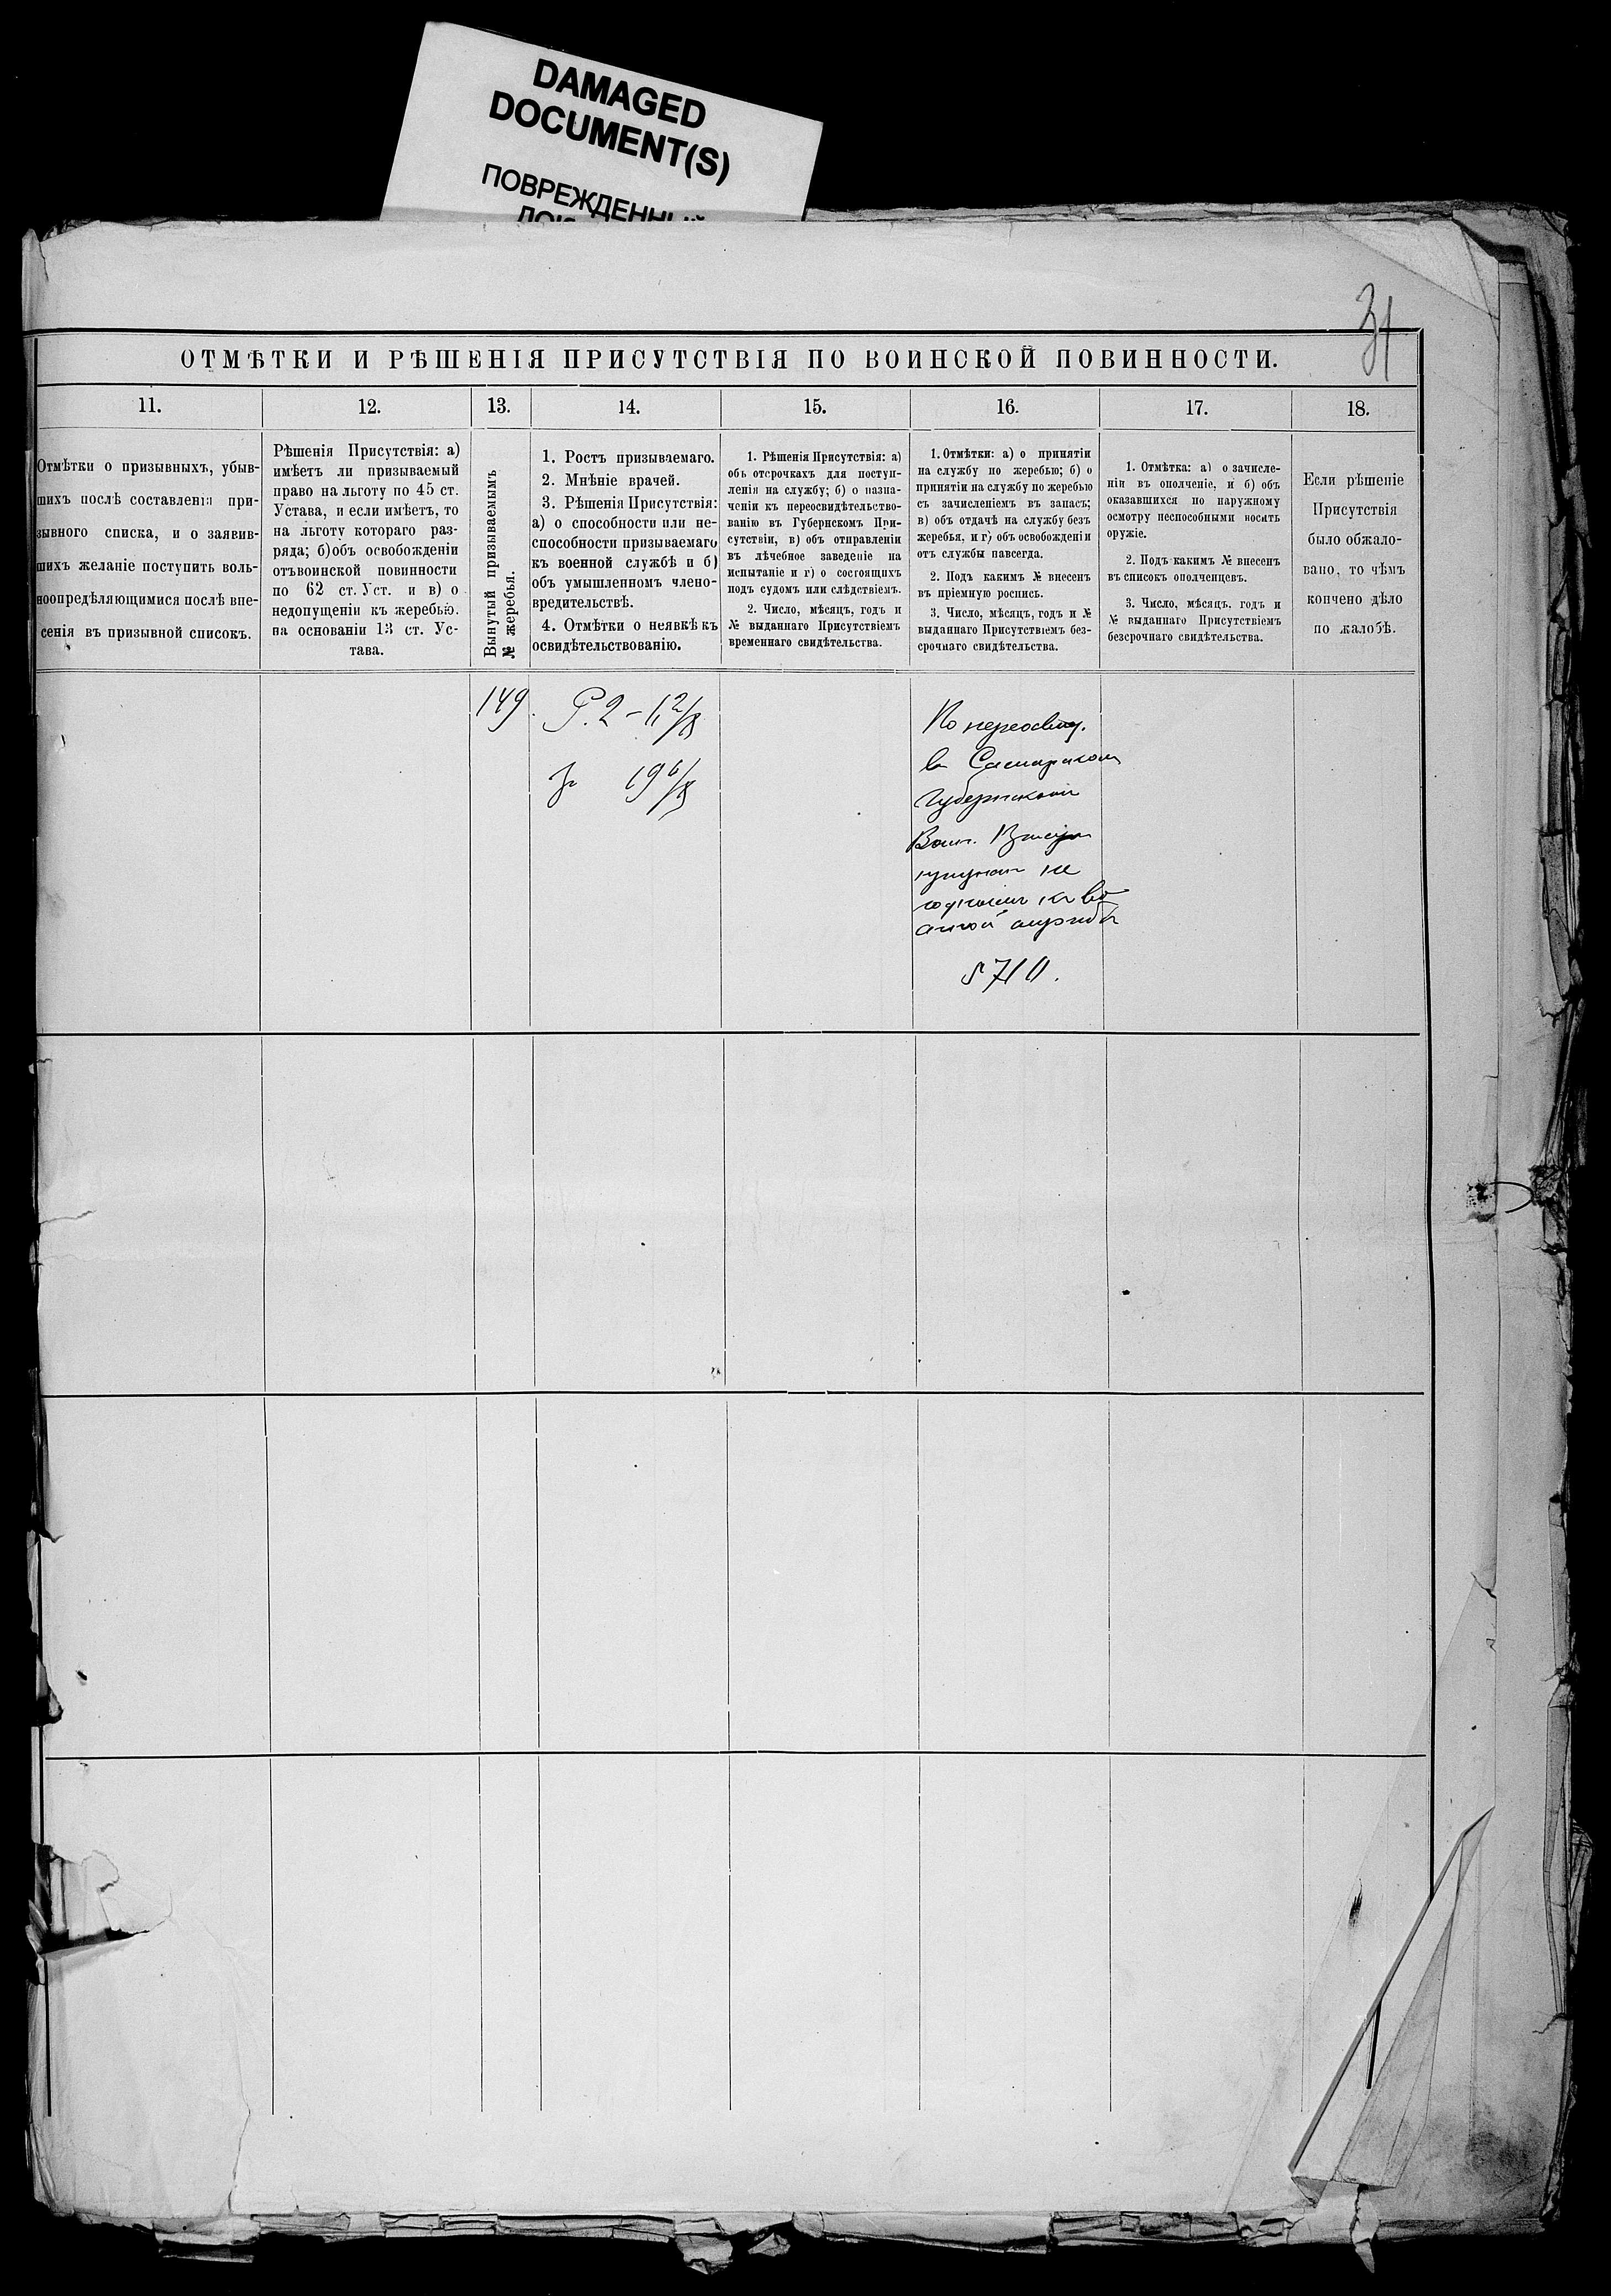 DAMAGED
DOCUMENT(S)
ПОВРЕЖДЕННЫЙ
31
ОТМѢТКИ И РѢШЕНІЯ ПРИСУТСТВІЯ ПО ВОИНСКОЙ ПОВИННОСТИ.
11.
12.
13.
14.
15.
16.
17.
18.
Отмѣтки о призывныхъ, убыв-
шихъ послѣ составленія при-
зывного списка, и о заявив-
шихъ желаніе поступить воль-
ноопредѣляющимися послѣ вне-
сенія въ призывной списокъ.
Рѣшенія Присутствія: а)
имѣетъ ли призываемый
право на льготу по 45 ст.
Устава, и если имѣетъ, то
на льготу котораго раз-
ряда; б) объ освобожденіи
отъ воинской повинности
по 62 ст. Уст. и в) о
недопущеніи къ жеребью.
на основаніи 13 ст. Ус-
тава.
Вынутый призываемымъ
№ жеребья.
1. Ростъ призываемаго.
2. Мнѣніе врачей.
3. Рѣшенія Присутствія:
а) о способности или не-
способности призываемаго
къ военной службѣ и б)
объ умышленномъ члено-
вредительствѣ.
4. Отмѣтки о неявкѣ къ
освидѣтельствованію.
1. Рѣшенія Присутствія: а)
объ отсрочкахъ для поступ-
ленія на службу; б) о назна-
ченіи къ переосвидѣтельство-
ванію въ Губернскомъ При-
сутствіи, в) объ отправленіи
въ лѣчебное заведеніе на
испытаніе и г) о состоящихъ
подъ судомъ или слѣдствіемъ.
2. Число, мѣсяцъ, годъ и
№ выданнаго Присутствіемъ
временнаго свидѣтельства.
1. Отмѣтки: а) о принятіи
на службу по жеребью; б) о
принятіи на службу по жеребью
съ зачисленіемъ въ запасъ;
в) объ отдачѣ на службу безъ
жеребья, и г) объ освобожденіи
отъ службы навсегда.
2. Подъ какимъ № внесенъ
въ пріемную роспись.
3. Число, мѣсяцъ, годъ и №
выданнаго Присутствіемъ без-
срочнаго свидѣтельства.
1. Отмѣтка: а) о зачисле-
ніи въ ополченіе, и б) объ
оказавшихся по наружному
осмотру неспособными носить
оружіе.
2. Подъ какимъ № внесенъ
въ списокъ ополченцевъ.
3. Число, мѣсяцъ, годъ и
№ выданнаго Присутствіемъ
безсрочнаго свидѣтельства.
Если рѣшеніе
Присутствія
было обжало-
вано, то чѣмъ
кончено дѣло
по жалобѣ.
149.
Р. 2 -
По переосвид.
въ Самарскомъ
Губернскомъ
Воин.
признанъ не
годнымъ къ во
енной службѣ
5710.